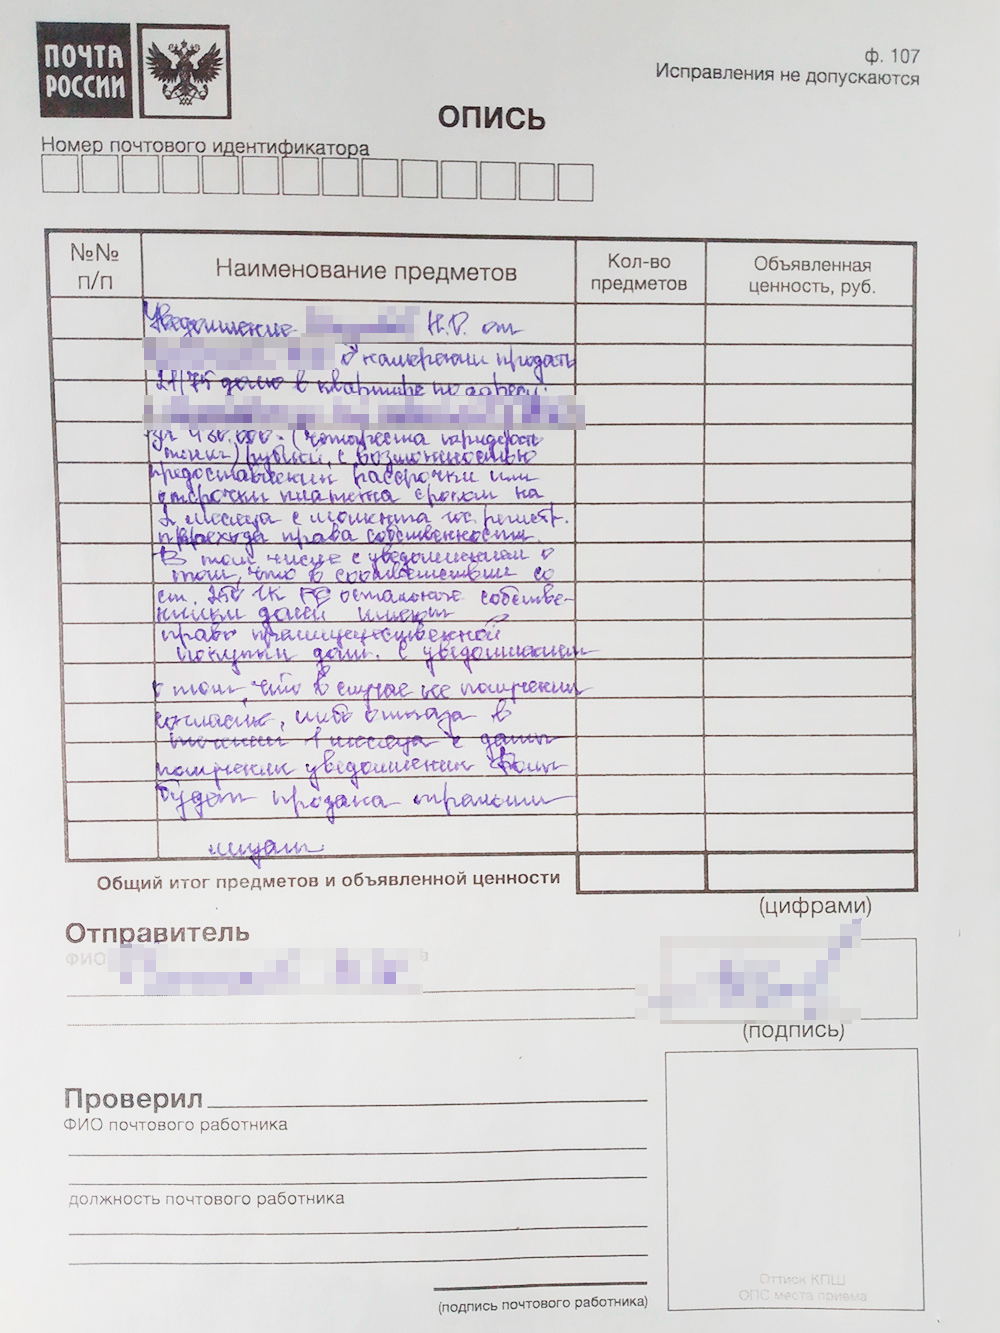 ПОЧТА
РОССИИ
ф. 107
Исправления не допускаются
ОПИСЬ
Номер почтового идентификатора
№№
п/п
Наименование предметов
Кол-во
предметов
Объявленная
ценность, руб.
Уведомление Н.В. от
о намерении продать
21/75 долю в квартире по адресу:
за 430.000 (четыреста тридцать
тысяч) рублей, с возможностью
предоставления рассрочки или
отсрочки платежа сроком на
2 месяца с момента гос. регистр.
перехода права собственности.
В том числе с уведомлением о
том, что в соответствии со
ст. 250 ГК РФ остальные собстве-
нники долей имеют
право преимущественной
покупки доли. С уведомлением
о том, что в случае не получения
согласия, либо отказа в
течении 1 месяца с даты
получения уведомления доля
будет продана третьим
лицам
Общий итог предметов и объявленной ценности
(цифрами)
Отправитель
ФИО
(подпись)
Проверил
ФИО почтового работника
должность почтового работника
(подпись почтового работника)
Оттиск КПШ
ОПС места приема